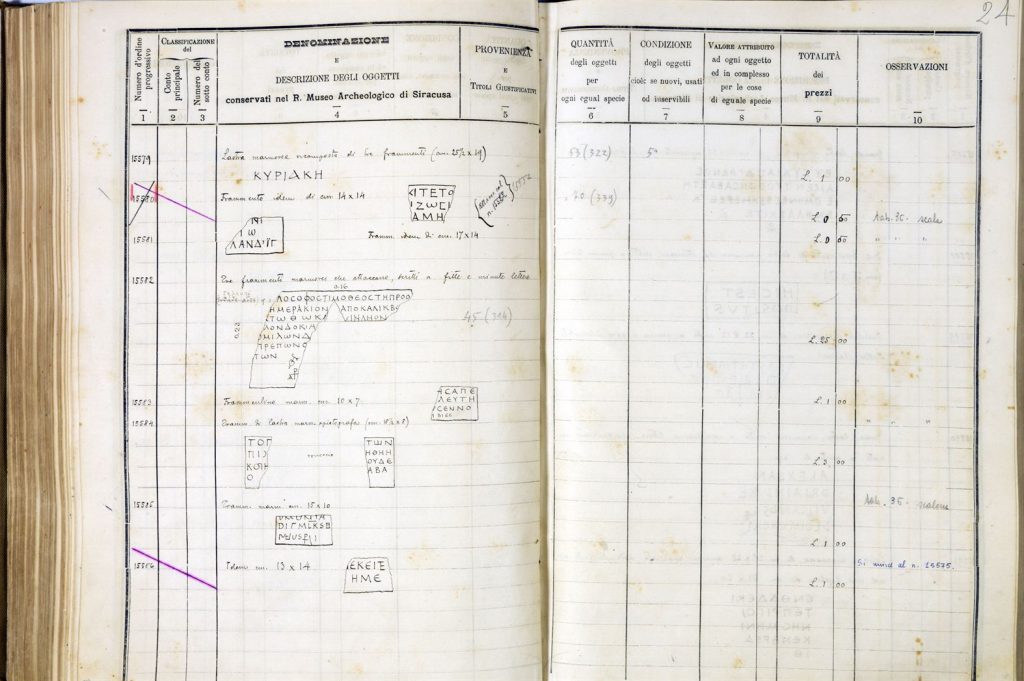 24
Numero d'ordine progressivo
1
CLASSIFICAZIONE
del
Conto principale
2
Numero del sotto conto
3
DENOMINAZIONE
E
DESCRIZIONE DEGLI OGGETTI
conservati nel R. Museo Archeologico di Siracusa
4
PROVENIENZA
E
TITOLI GIUSTIFICATIVI
5
QUANTITÀ
degli oggetti
per
ogni egual specie
6
CONDIZIONE
degli oggetti
cioè: se nuovi, usati
od inservibili
7
VALORE ATTRIBUITO
ad ogni oggetto
ed in complesso
per le cose
di eguale specie
8
TOTALITÀ
dei
prezzi
9
OSSERVAZIONI
10
15579
Lastra marmorea ricomposta di tre frammenti (cm. 25½ x 19)
ΚΥΡΙΑΚΗ
53 (322)
L. 1 00
15580
Frammento idem di cm. 14 x 14
ΚΙΤΕΤΟ
ΙΖΩCΙ
ΑΜΗ
n. 15582
15552
20 (339)
L. 0 50
Aab. 35. scala
15581
Ι Ω
Framm. idem di cm. 17 x 14
L. 0 50
" " "
15582
Due frammenti marmorei che attaccano, scritti a fitte e minute lettere
0.16
ΛΟCΟΦΟCΤΙΜΟΘΕΟCΤΗΠΡΟΘ
ΗΜΕΡΑΚΙΟΝ ΑΠΟΚΑΛΙΚΒ
ΤΩΘΩΚΑ ΙΝΛΗΟΝ
ΛΟΝΔΟΚΙΑ
ΜΙΛΩΝΔ
ΤΡΕΠΩΝC
ΤΩΝ
0.23
45 (314)
L. 25 00
15583
Frammentino marm. cm. 10 x 7
ΑCΑΠΕ
ΛΕΥΤΗ
CΕΝΝΟ
L. 1 00
15584
Framm. di lastra marm. opistografa
ΤΟΓ
ΠΙC
ΚΟΠΟ
Ο
ΤΩΝ
ΗΘΗΗ
ΟΥΔΕ
ΑΒΑ
" " "
L. 3 00
15585
Framm. marm. cm. 15 x 10
L. 1 00
Aab. 35. scalone
15586
Idem cm. 13 x 14
ΕΚΕΙΞ
ΗΜΕ
L. 1 00
Si unisce al n. 15575.